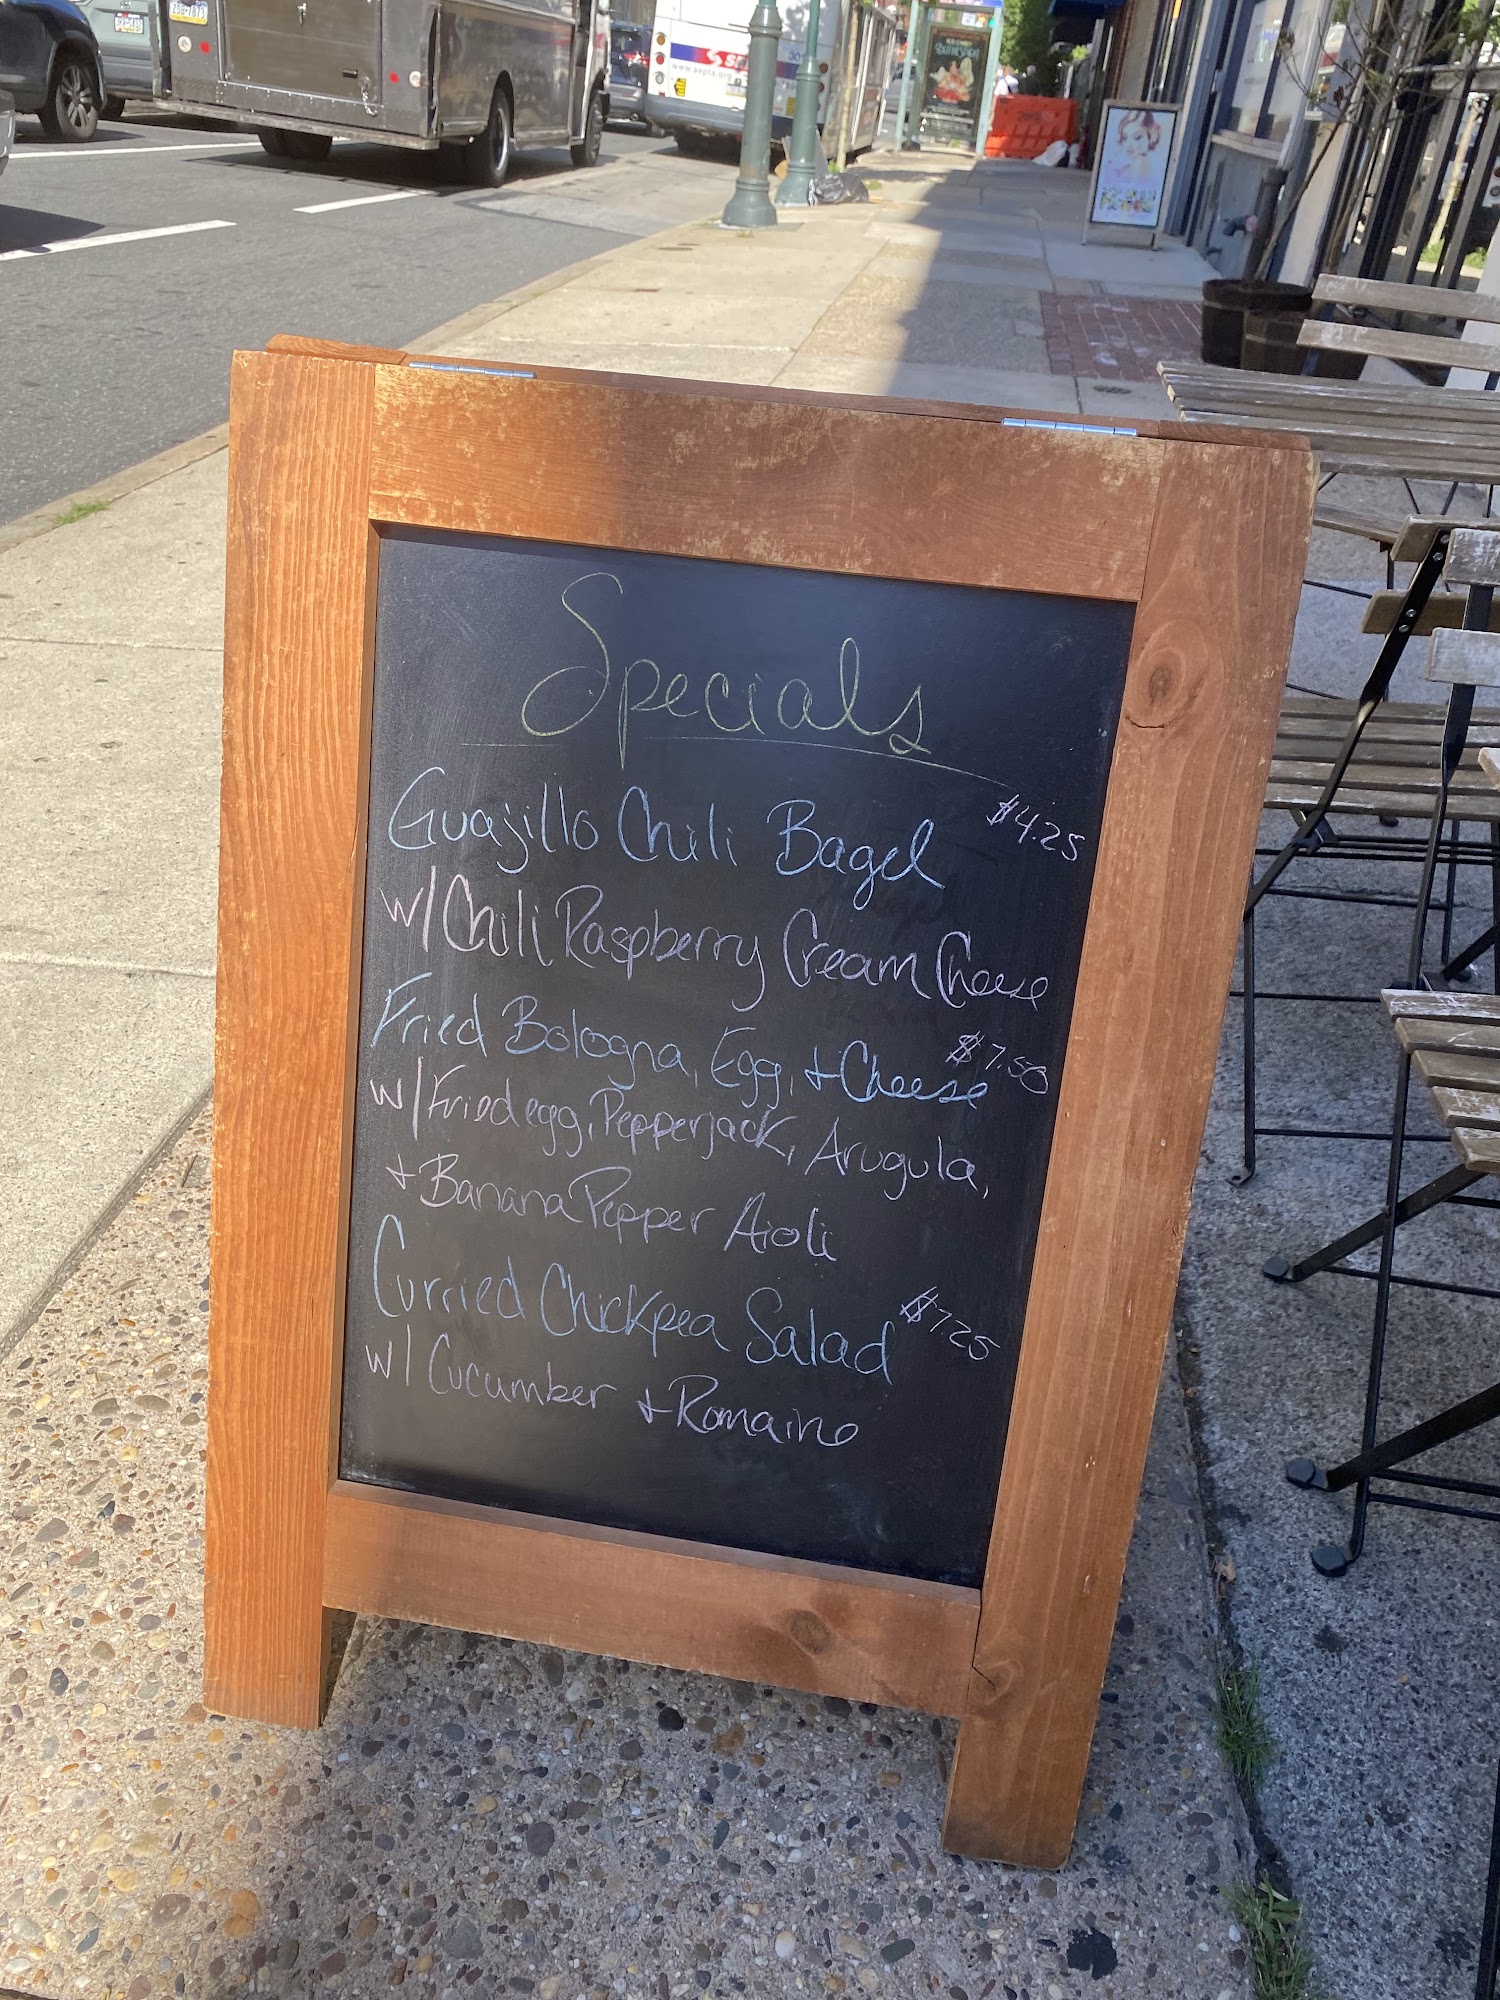 Specials
Guajillo Chili Bagel $4.25
w/ Chili Raspberry Cream Cheese
Fried Bologna, Egg, + Cheese $7.50
w/ Fried egg, Pepperjack, Arugula,
+ Banana Pepper Aioli
Curried Chickpea Salad $7.25
w/ Cucumber + Romaine
www.septa.org